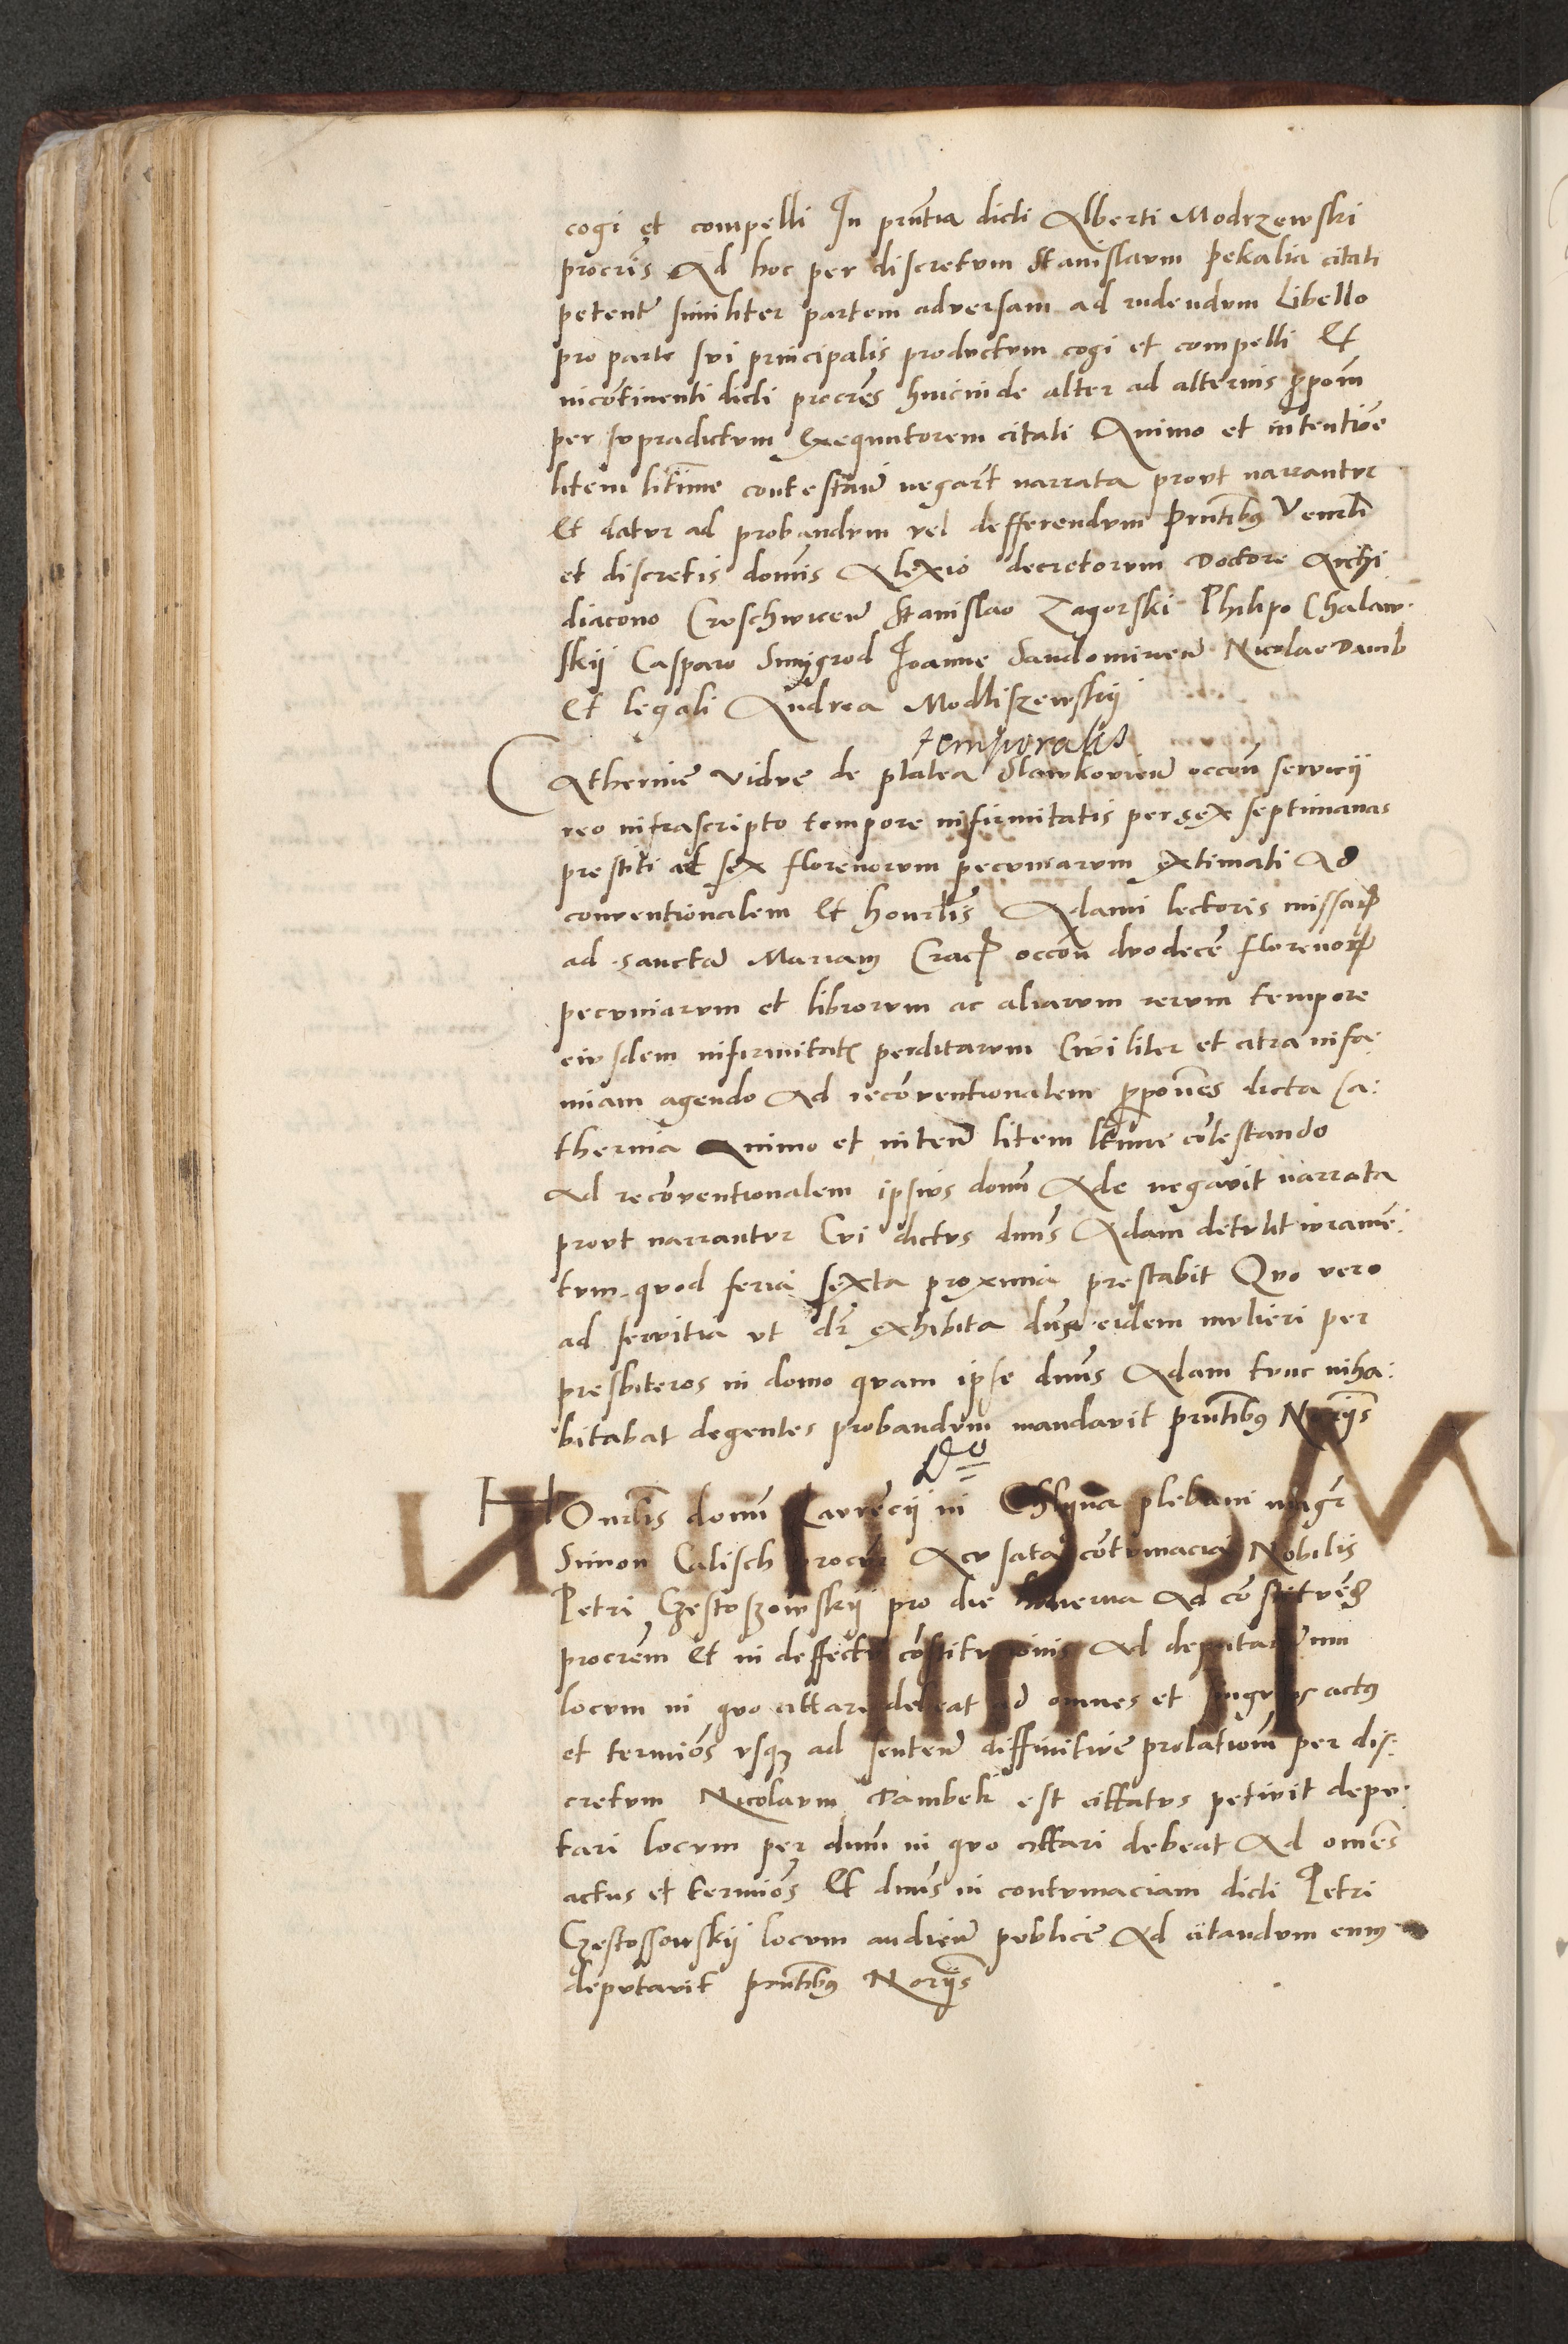 cogi et compelli In pruntia dicti Alberti Modrzewski
procris Ad hoc per discretum Stanislaum pekalia citati
petente similiter partem adversam ad rndendum libello
pro parte sui principalis productum cogi et compelli Et
incotinenti dicti procres hincinde alter ad alterius ppom
per supradictum exequutorem citati Animo et intentioe
litem litime contestan negart narrata prout narrantur
Et datur ad probandum vel defferendum pruntibus Venrbli
et discretis domis Alexio decretorum Doctore Archi
diacono Stanislao Zagorski Philipo Chalaw
skij Casparo Smygrod Joanne Sandomirien Nicolao Damb
Et legali Andrea Modliszewskij
temporalis
Catherine vidue de platea Slawkovien occon servicij
reo infrascripto tempore infirmitatis per sex septimanas
prestiti ac sex florenorum pecuniarum extimati Ad
conventionalem Et honrlis Adami lectoris missar
ad sanctam Mariam Crac occon duodece florenor
pecuniarum et librorum ac aliarum rerum tempore
eiusdem infirmitatis perditarum Civiliter et citra infa:
miam agendo Ad reconventionalem ppones dicta Ca:
therina Animo et inten litem ltime cotestando
Ad reconventionalem ipsius domi Ade negavit narrata
prout narrantur Cui dictus dnus Adam detulit iurame:
tum quod feria sexta proxima prestabit Quo vero
ad servitia ut dr exhibita dnus eidem mulieri per
presbiteros in domo quam ipse dnus Adam tunc inha:
bitabat degentes probandum mandavit pruntibus Norijs
HOnrlis domi Laurecij in Chlyna plebani magr
Simon Calisch procur Acusata contumacia Nobilis
Petri Czestoszowskij pro die hodierna Ad constituend
procrem Et in deffectu constitutionis Ad deputandum
locum in quo cittari debeat ad omnes et singulos actus
et termios usque ad senten diffinitive prolationem per dis:
cretum Nicolaum Dambek est cittatus petivit depu:
tari locum per dnum in quo cittari debeat Ad omes
actus et termios Et dnus in contumaciam dicti Petri
Czestossowskij locum audien publice Ad citandum eum
deputavit pruntibus Norijs